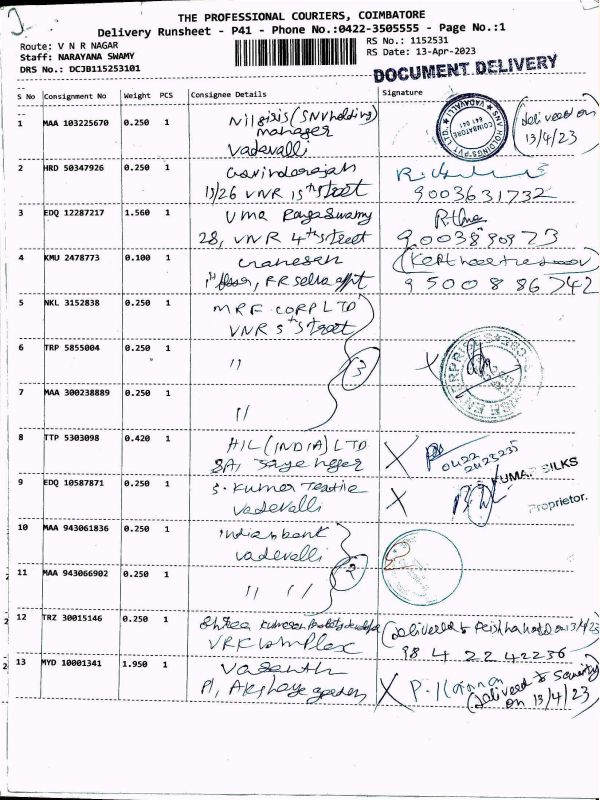 THE PROFESSIONAL COURIERS, COIMBATORE
Delivery Runsheet - P41 - Phone No.:0422-3505555 - Page No.:1
Route: V N R NAGAR
RS No.: 1152531
Staff: NARAYANA SWAMY
RS Date: 13-Apr-2023
DRS No.: DCJB115253101
DOCUMENT DELIVERY
S No Consignment No Weight PCS Consignee Details Signature
1 MAA 103225670 0.250 1 Nilgiris (SNV holding)
manager
Vadavalli
(delivered on
13/4/23
2 HRD 50347926 0.250 1
13/26 VNR 15th street
9003631732
3 EDQ 12287217 1.560 1 Uma Rangaswamy
28, VNR 4th street
4 KMU 2478773 0.100 1 Ganesan
9500886742
5 NKL 3152838 0.250 1 MRF CORP LTD
VNR 5th street
6 TRP 5855004 0.250 1 "
3
7 MAA 300238889 0.250 1
"
8 TTP 5303098 0.420 1 HIL (INDIA) LTD
X
0422
2423235
9 EDQ 10587871 0.250 1 S. Kumar Textile
Vadavalli
X
KUMAR SILKS
Proprietor.
10 MAA 943061836 0.250 1 Indian bank
Vadavalli
11 MAA 943066902 0.250 1 " "
2
12 TRZ 30015146 0.250 1
VRK complex
98 4 22 42236
13 MYD 10001341 1.950 1 Vasanth
X P. Kannan
(delivered to security
on 13/4/23)